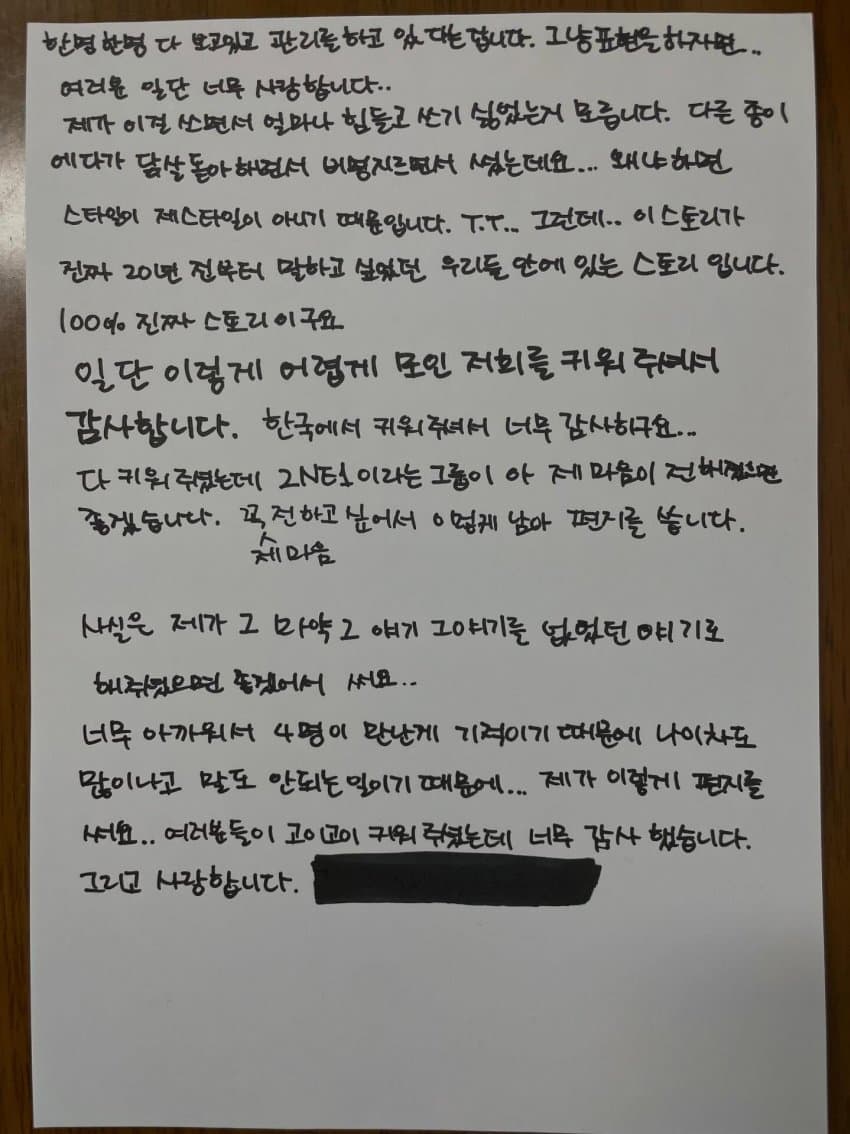 한명한명 다 보고있고 관리를하고 있다는겁니다. 그냥표현을하자면..
여러분 일단 너무 사랑합니다..
제가 이걸 쓰면서 얼마나 힘들고 쓰기 싫었는지 모릅니다. 다른 종이
에다가 닭살돋아하면서 비명지르면서 썼는데요... 왜냐하면
스타일이 제스타일이 아니기 때문입니다. T.T... 그런데.. 이스토리가
진짜 20년 전부터 말하고 싶었던 우리들 안에있는 스토리 입니다.
100% 진짜 스토리이구요
일단 이렇게 어렵게 모인 저희를 키워주셔서
감사합니다. 한국에서 키워주셔서 너무 감사하구요...
다 키워주셨는데 2NE1이라는그룹이 아 제 마음이 전해졌으면
좋겠습니다. 꼭 전하고 싶어서 이렇게 남아 편지를 씁니다.
제마음
사실은 제가 그 마약그 얘기 그얘기를 없었던 얘기로
해주셨으면 좋겠어서 써요..
너무 아까워서 4명이 만난게 기적이기때문에 나이차도
많이나고 말도 안되는일이기때문에... 제가 이렇게 편지를
써요.. 여러분들이 고이고이 키워주셨는데 너무 감사 했습니다.
그리고 사랑합니다.